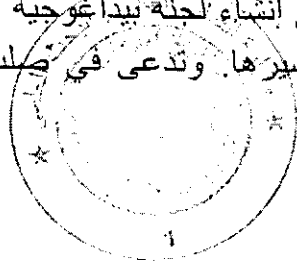 انشاء لجنة بيداغوجية
سيرها. وتدعى في صلب
1